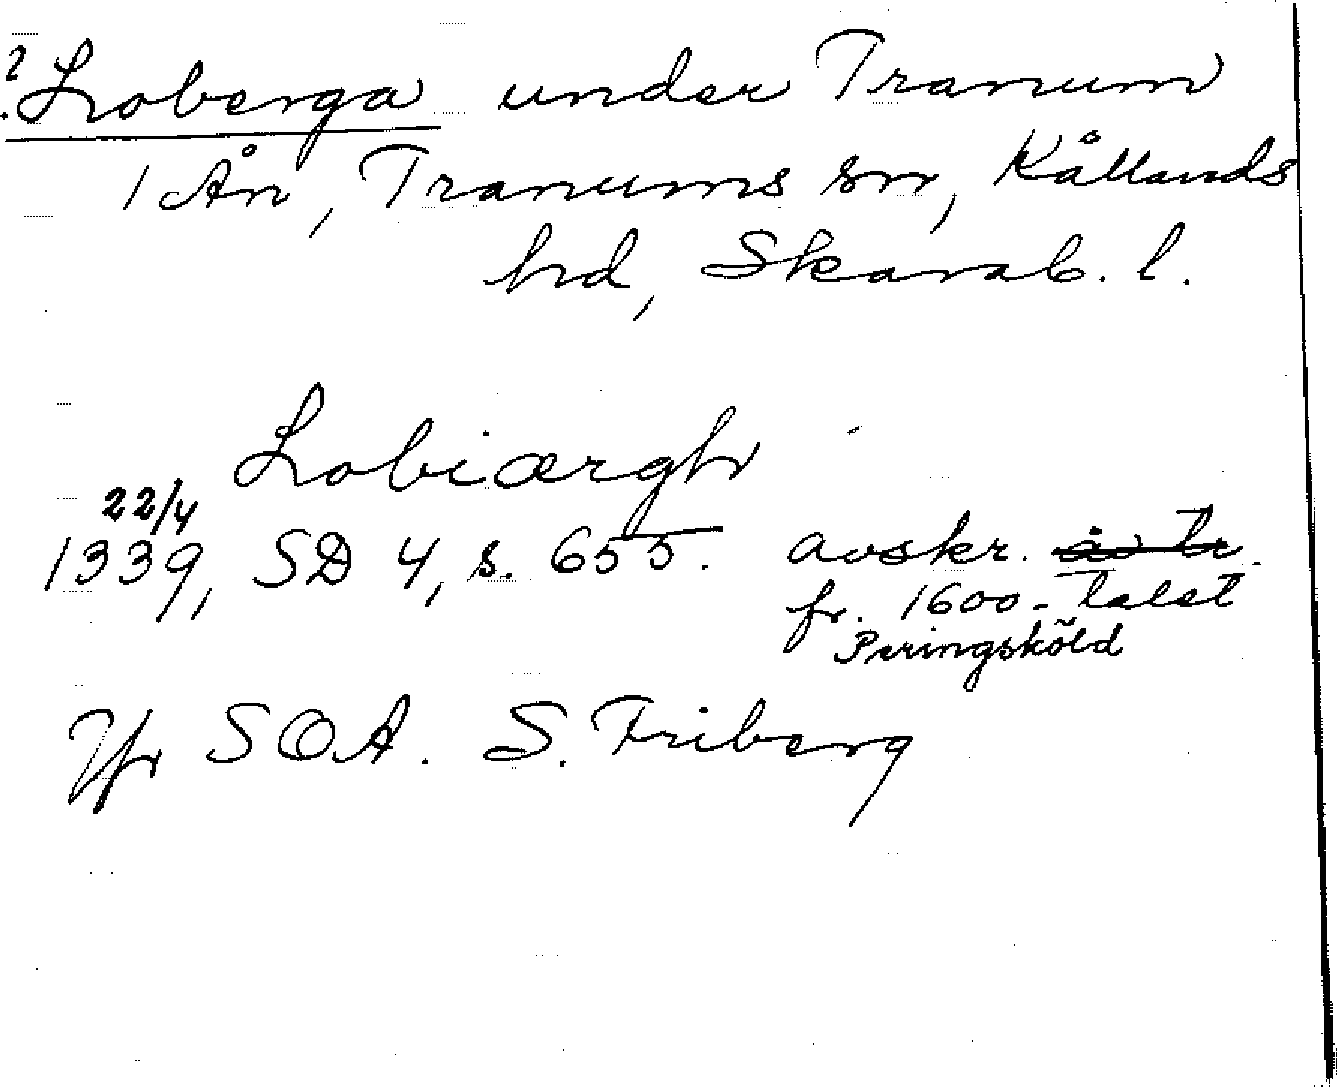 ? Loberga under Tranum
1 Ån, Tranums sn, Kållands
hd, Skarab. l.
Lobiærgh
22/4
1339, SD 4, s. 655. avskr.
fr. 1600-talet
Peringsköld
Jfr SOA. S. Friberg